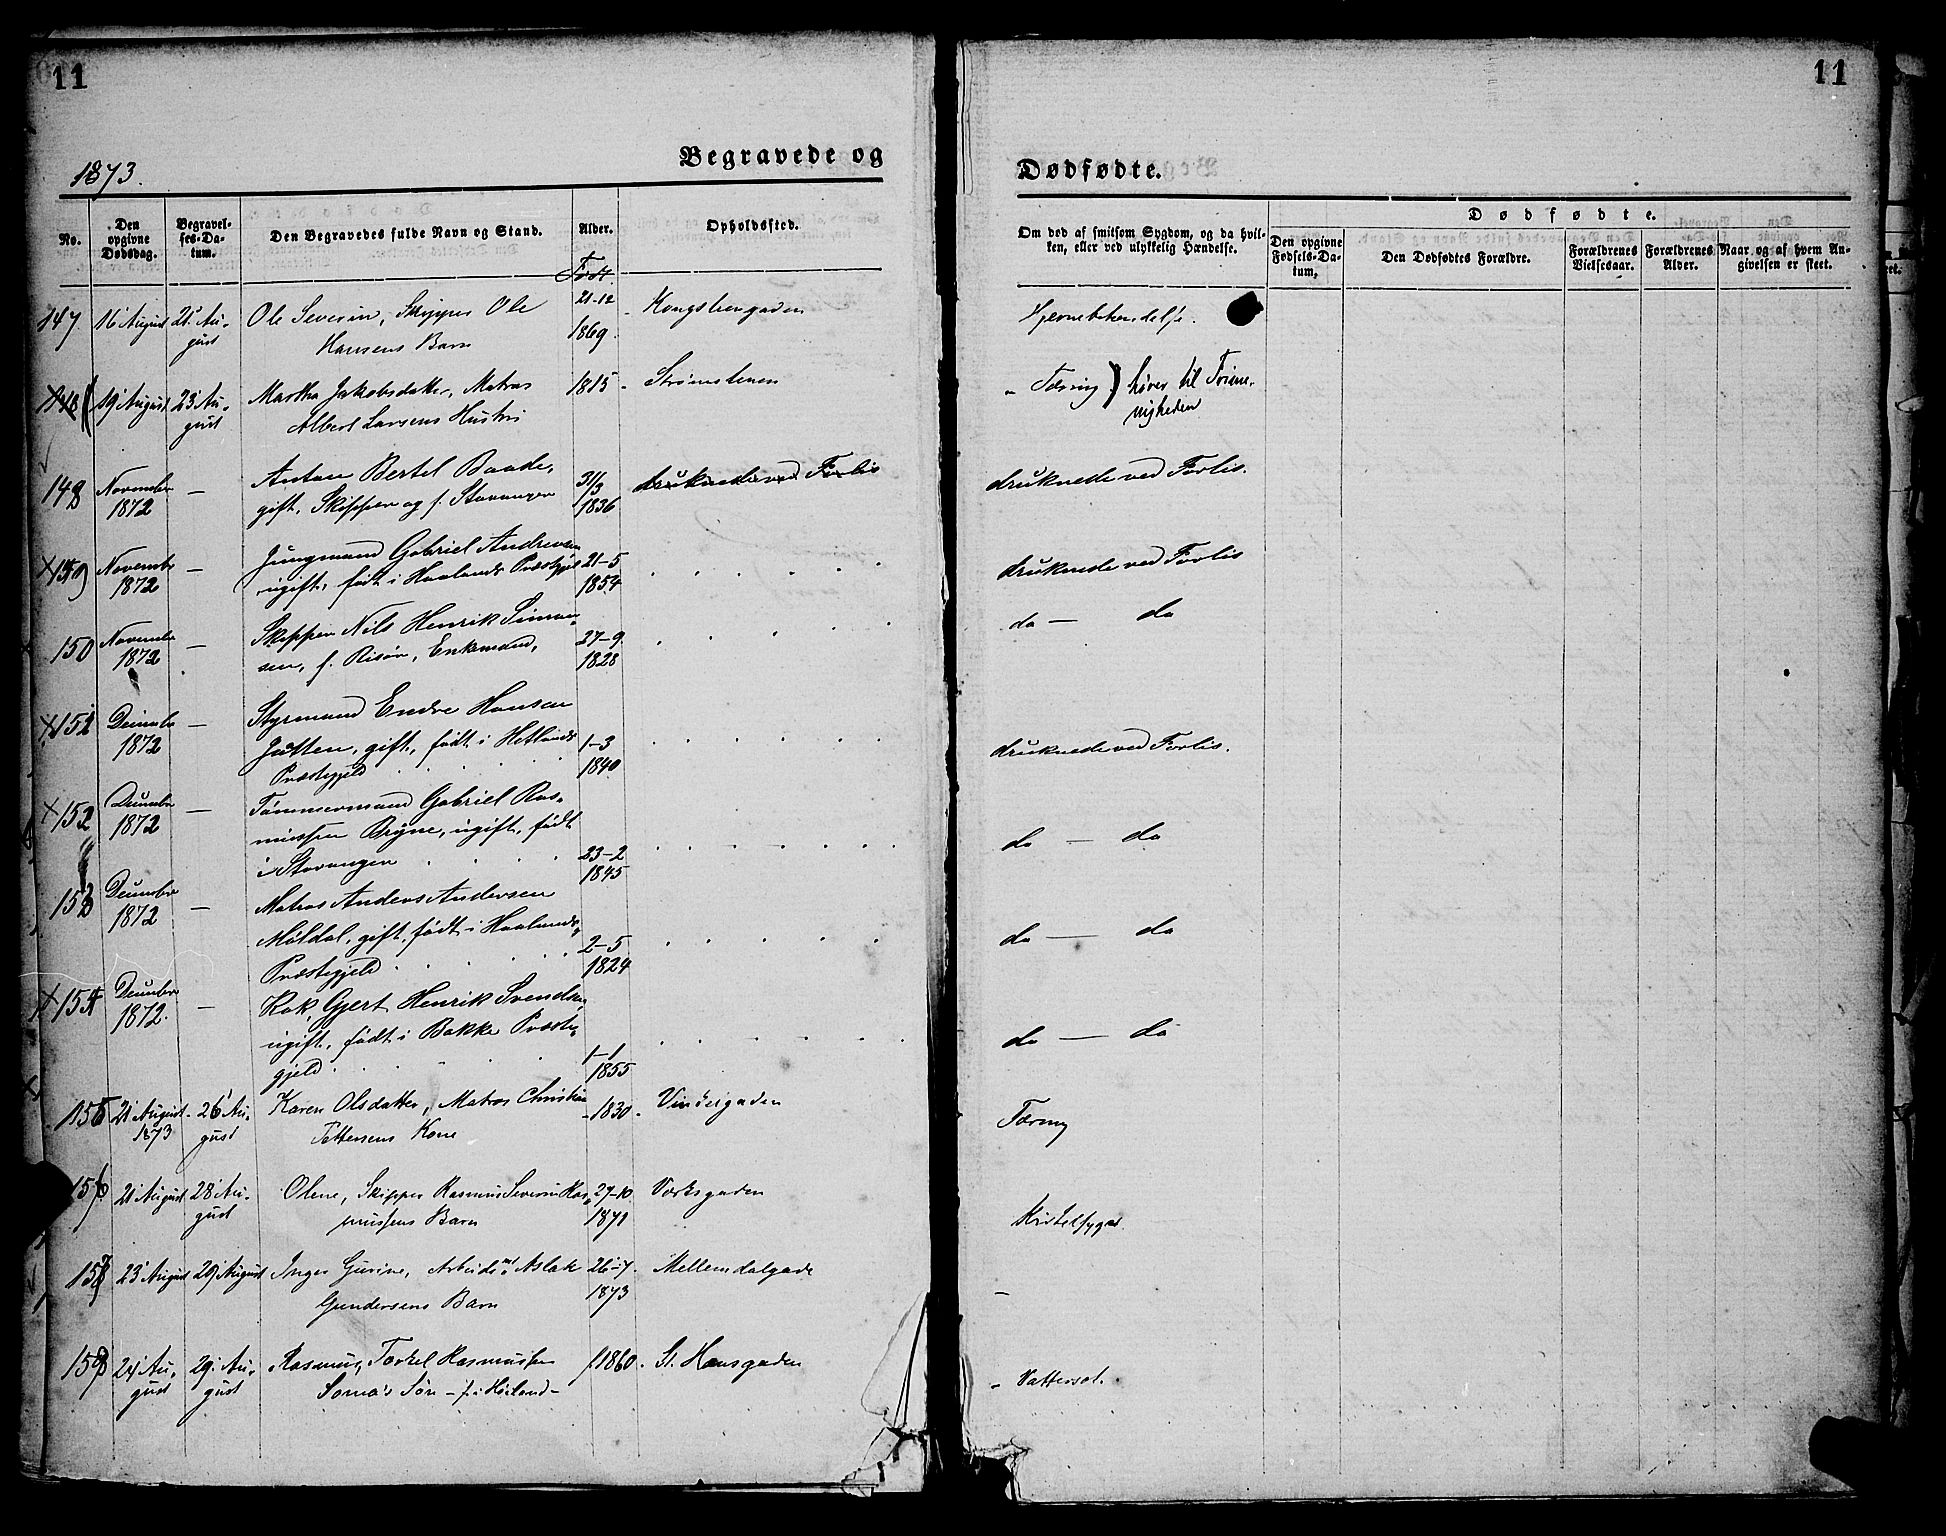 11
11
1873.
Begravede og
Dødfødte.
No.
Den opgivne Dødsdag.
Begravelses-Datum.
Den Begravedes fulde Navn og Stand.
Alder.
Født.
Opholdssted.
Om død af smitsom Sygdom, og da hvilken, eller ved ulykkelig Hændelse.
Dødfødte.
Den opgivne Fødsels-Datum.
Den Dødfødtes Forældre.
Forældrenes Vielsesaar.
Forældrenes Alder.
Naar og af hvem Angivelsen er skeet.
147 16 August 21 Au- Ole Severin, Skipper Ole 21-12 Kongsteengaden
gust Hansens Barn 1869.
148 19 August 23 Au- Martha Jakobsdatter, Matros 1815 - Strømstenen - Tæring) hører til Treene-
gust Albert Larsens Hustru nigheden
148 November - Anton Bertel Baade, 31/3 druknede ved Forlis druknede ved Forlis.
1872 gift, Skipper og f. Stavanger 1836
149 November - Jungmand Gabriel Andersen 21-5 druknede ved Forlis
1872 ugift, født i Haalands Præstgjld 1854
150 November - Skipper Nils Henrik Simon- 27-9 do - do
1872 sen, f. Risør, Enkemand, 1828
151 December - Styrmand Endre Hansen
1872 Jåtten, gift, født i Hetlands 1-3 druknede ved Forlis.
Præstegjeld 1840
152 December - Tømmermand Gabriel Ras-
1872 mussen Bryne, ugift, født do - do
i Stavanger 23-2
1845
153 December - Matros Anders Andersen
1872 Møldal, gift, født i Haalands 2-5 do - do
Præstegjeld 1824
154 December - Kok, Gjert Henrik Svendsen,
1872. ugift, født i Bakke Præste- do - do
gjeld 1-1
1855
155 21 August 26 Au- Karen Olsdatter, Matros Christian - 1830 - Vindergaden Tæring
1873 gust Pettersens Kone
156 21 August 28 Au- Olene, Skipper Rasmus Severin Ras- 27-10 Værksgaden Kirtelsyge.
gust mussens Barn 1871
157 23 August 29 August Inger Gurine, Arbeidsm Aslak 26-7. Mellemdalgade -
Gundersens Barn 1873
158 24 Au- 29 Au- Rasmus, Torkel Rasmussen 1860. St. Hansgaden - Vattersot.
gust gust Somas Søn - f. i Høiland -